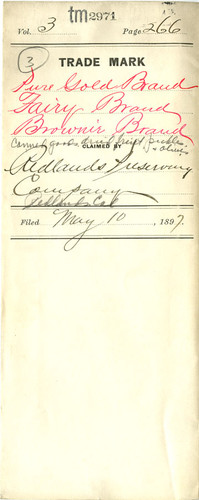 tm 2971
Vol. 3 Page 266
3
TRADE MARK
Pure Gold Brand
Fairy Brand
Brownie Brand
Canned goods dried fruit, pickles
& olives
CLAIMED BY
Redlands Preserving
Company
Redlands Cal
Filed May 10, 1897.